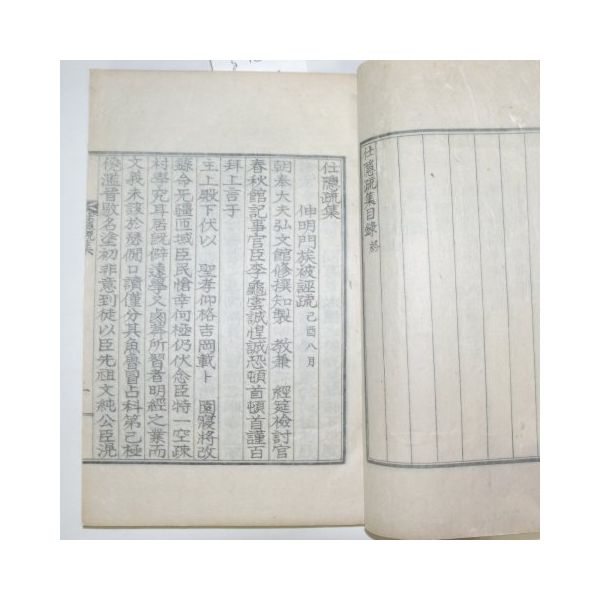 仕隱疏集目錄 終
仕隱疏集
伸明門族被誣疏 己酉八月
朝奉大夫弘文館修撰知製 教兼 經筵檢討官
春秋館記事官臣李龜雲誠惶誠恐頓首頓首謹百
拜上言于
主上殿下伏以 聖孝仰格吉岡載卜 園寢將改
縣令无疆區域臣民愴幸何極仍伏念臣特一空疎
村學究耳居旣僻遠學又鹵莽所習者明經之業而
文義未該於懸
口讀僅分其魚魯冒占科第已極
僥濫晋敭名塗初非意到徒以臣先祖文純公臣滉